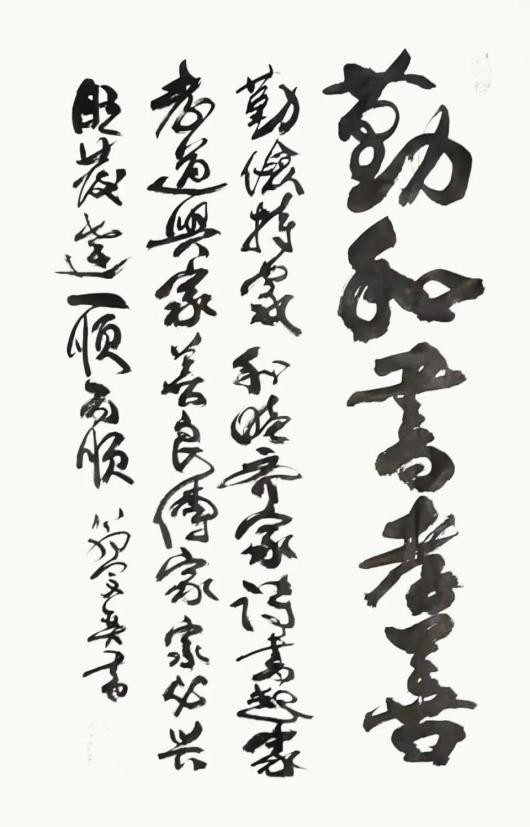 勤和書孝善
勤儉持家和睦齐家詩書起家
孝道興家善良傳家家必兴
旺發達一順百順 書